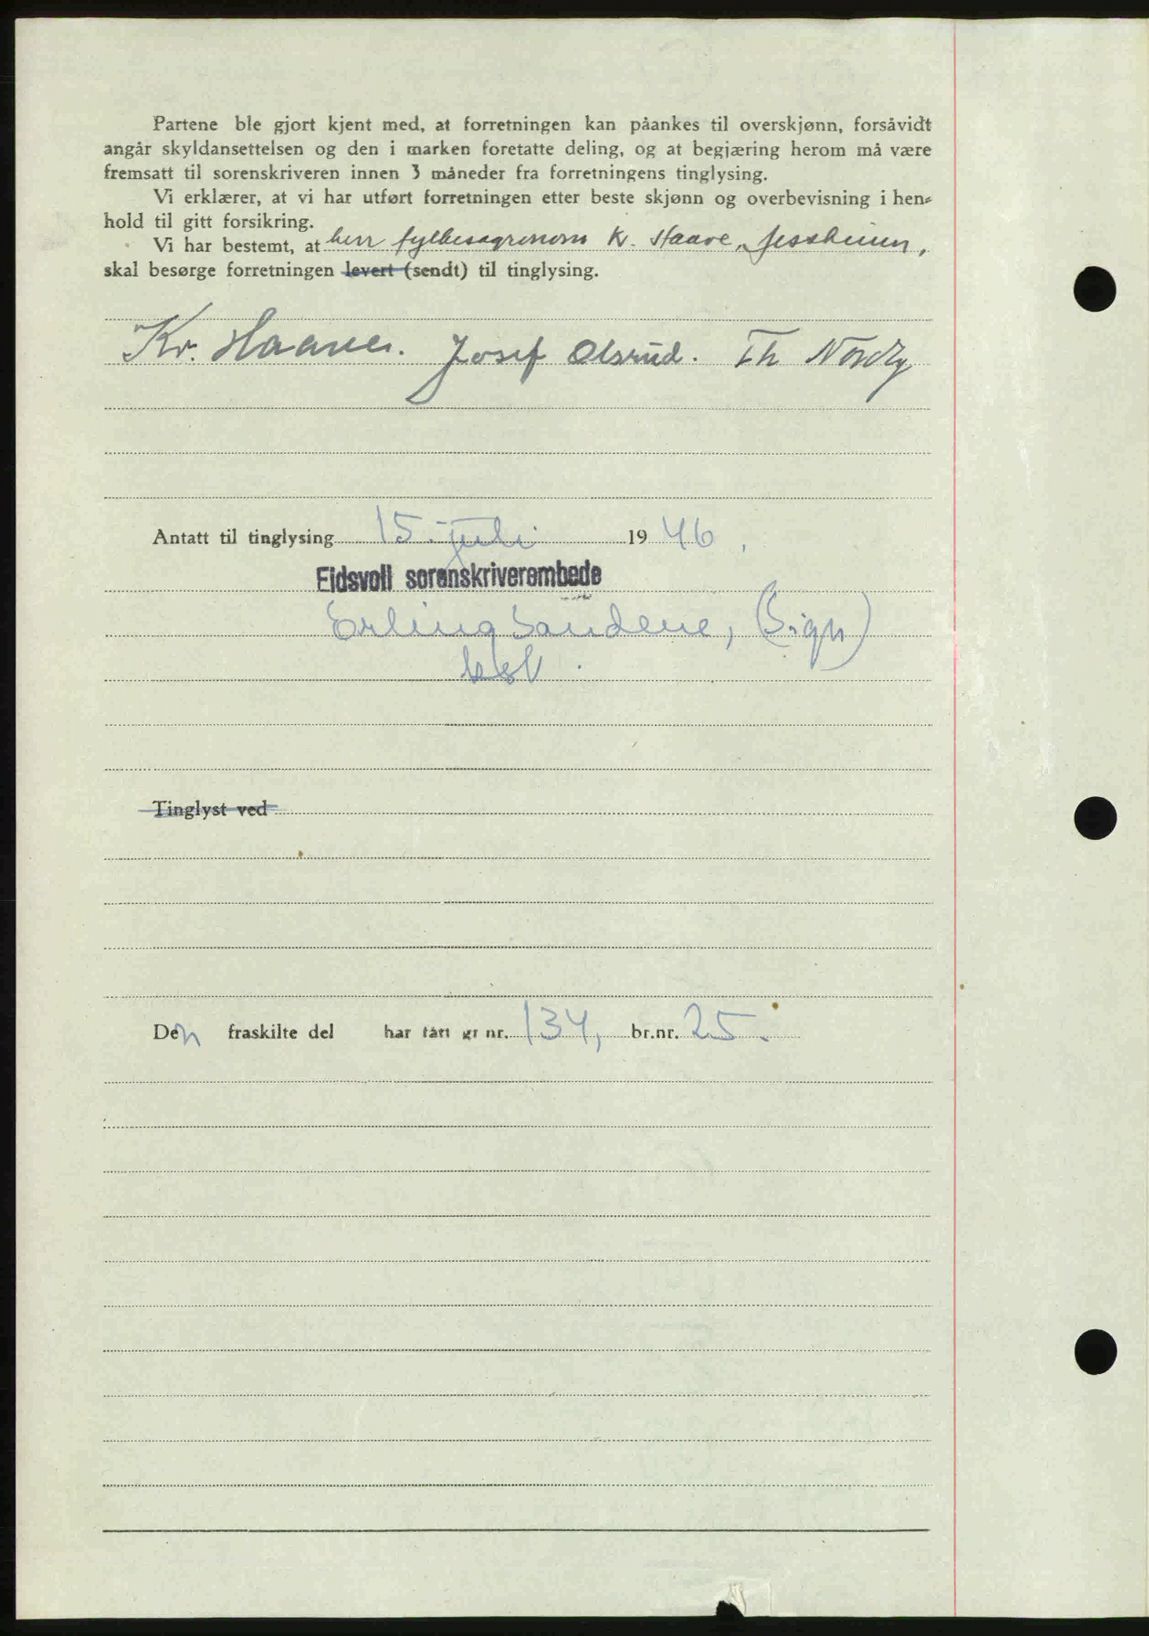 Partene ble gjort kjent med, at forretningen kan påankes til overskjønn, forsåvidt
angår skyldansettelsen og den i marken foretatte deling, og at begjæring herom må være
fremsatt til sorenskriveren innen 3 måneder fra forretningens tinglysing.
Vi erklærer, at vi har utført forretningen etter beste skjønn og overbevisning i hen-
hold til gitt forsikring.
Vi har bestemt, at herr fylkesagronom Kr. Haave, Jessheim,
skal besørge forretningen levert (sendt) til tinglysing.
Kr. Haave. Josef Olsrud. Th Nordby
Antatt til tinglysing 15. juli 1946.
Eidsvoll sorenskriverembede
Erling Sandene, (sign)
Tinglyst ved
Den fraskilte del har fått gr nr. 134, br.nr. 25.